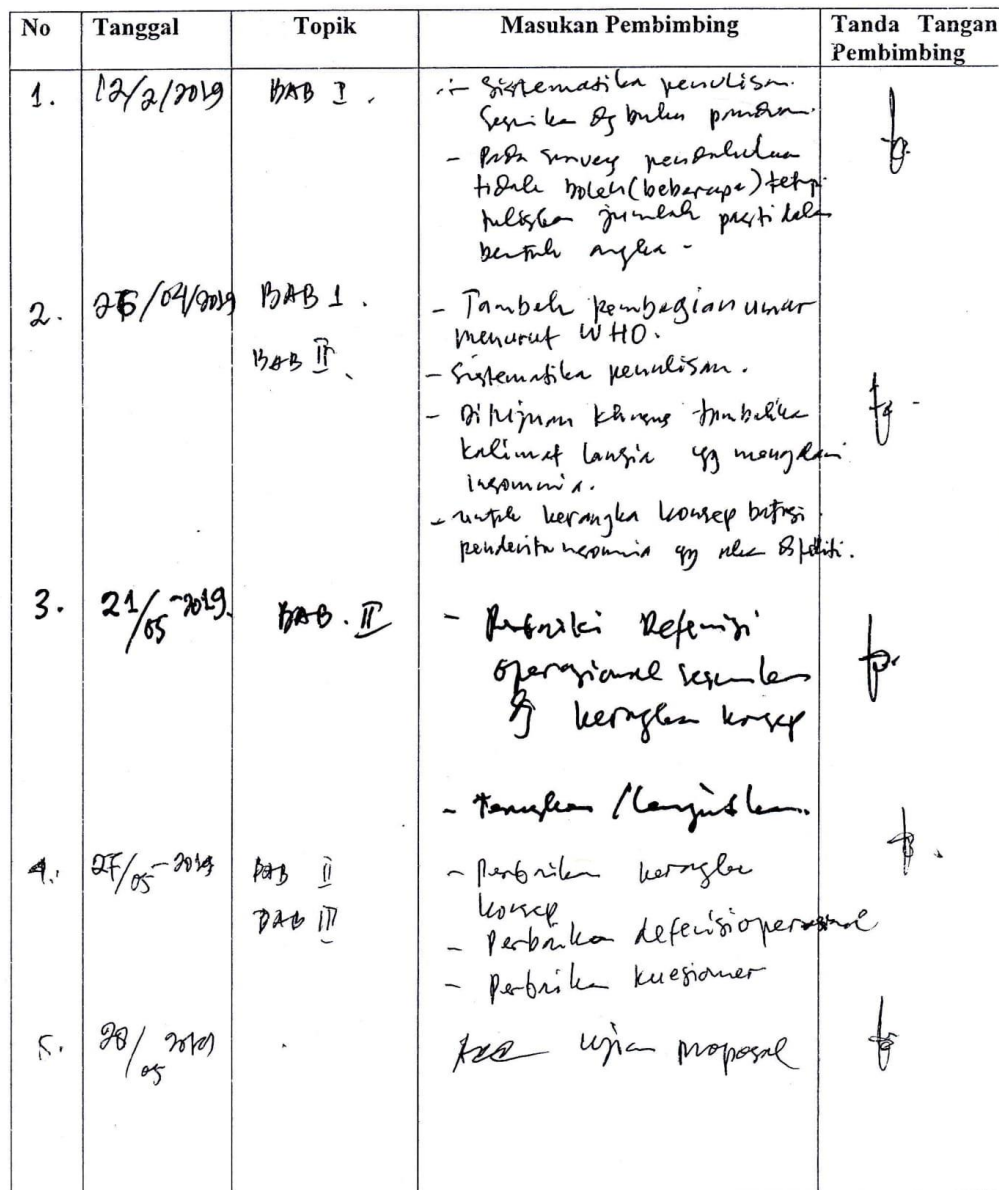 No Tanggal Topik Masukan Pembimbing Tanda Tangan
Pembimbing
1. 12/2/2019 BAB I . - Sistematika penulisan.
Sesuika dg buku panduan.
- Pada survey pendahuluan
tidak boleh (beberapa) tetapi
tuliskan jumlah pasti dalam
bentuk angka -
2. 26/04/2019 BAB 1 . - Tambah pembagian umur
menurut WHO.
BAB II . - Sistematika penulisan.
- Di tujuan khusus tambahka
kalimat lansia yg mengalami
insomnia.
- untuk kerangka konsep batasi
penderita insomnia yg akan diteliti.
3. 21/05-2019. BAB . II - Perbaiki Defenisi
operasional sesuikan
dg kerangka konsep
- /lanjutkan.
4. 27/05-2019 BAB II - Perbaikan kerangka
konsep
BAB III - Perbaika defenisi operasional
- Perbaika kuesioner
5. 28/05 2019 Acc ujian proposal